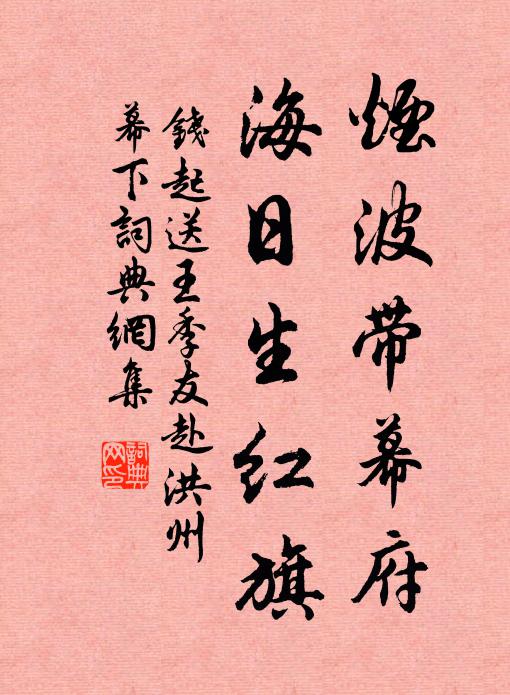 煙波带幕府
海日生红旗
錢起送王季友赴洪州
幕下詞典網集
詞典网印